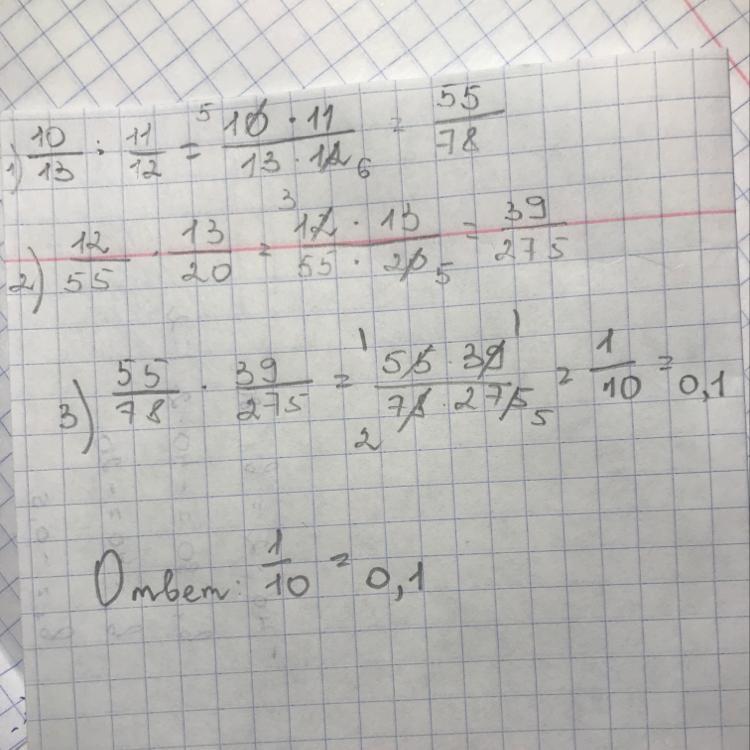 1) 10/13 : 11/12 = 5 10 · 11 / 13 · 12 6 = 55/78
2) 12/55 · 13/20 = 3 12 · 13 / 55 · 20 5 = 39/275
3) 55/78 · 39/275 = 1 55 · 39 1 / 2 78 · 275 5 = 1/10 = 0,1
Ответ: 1/10 = 0,1